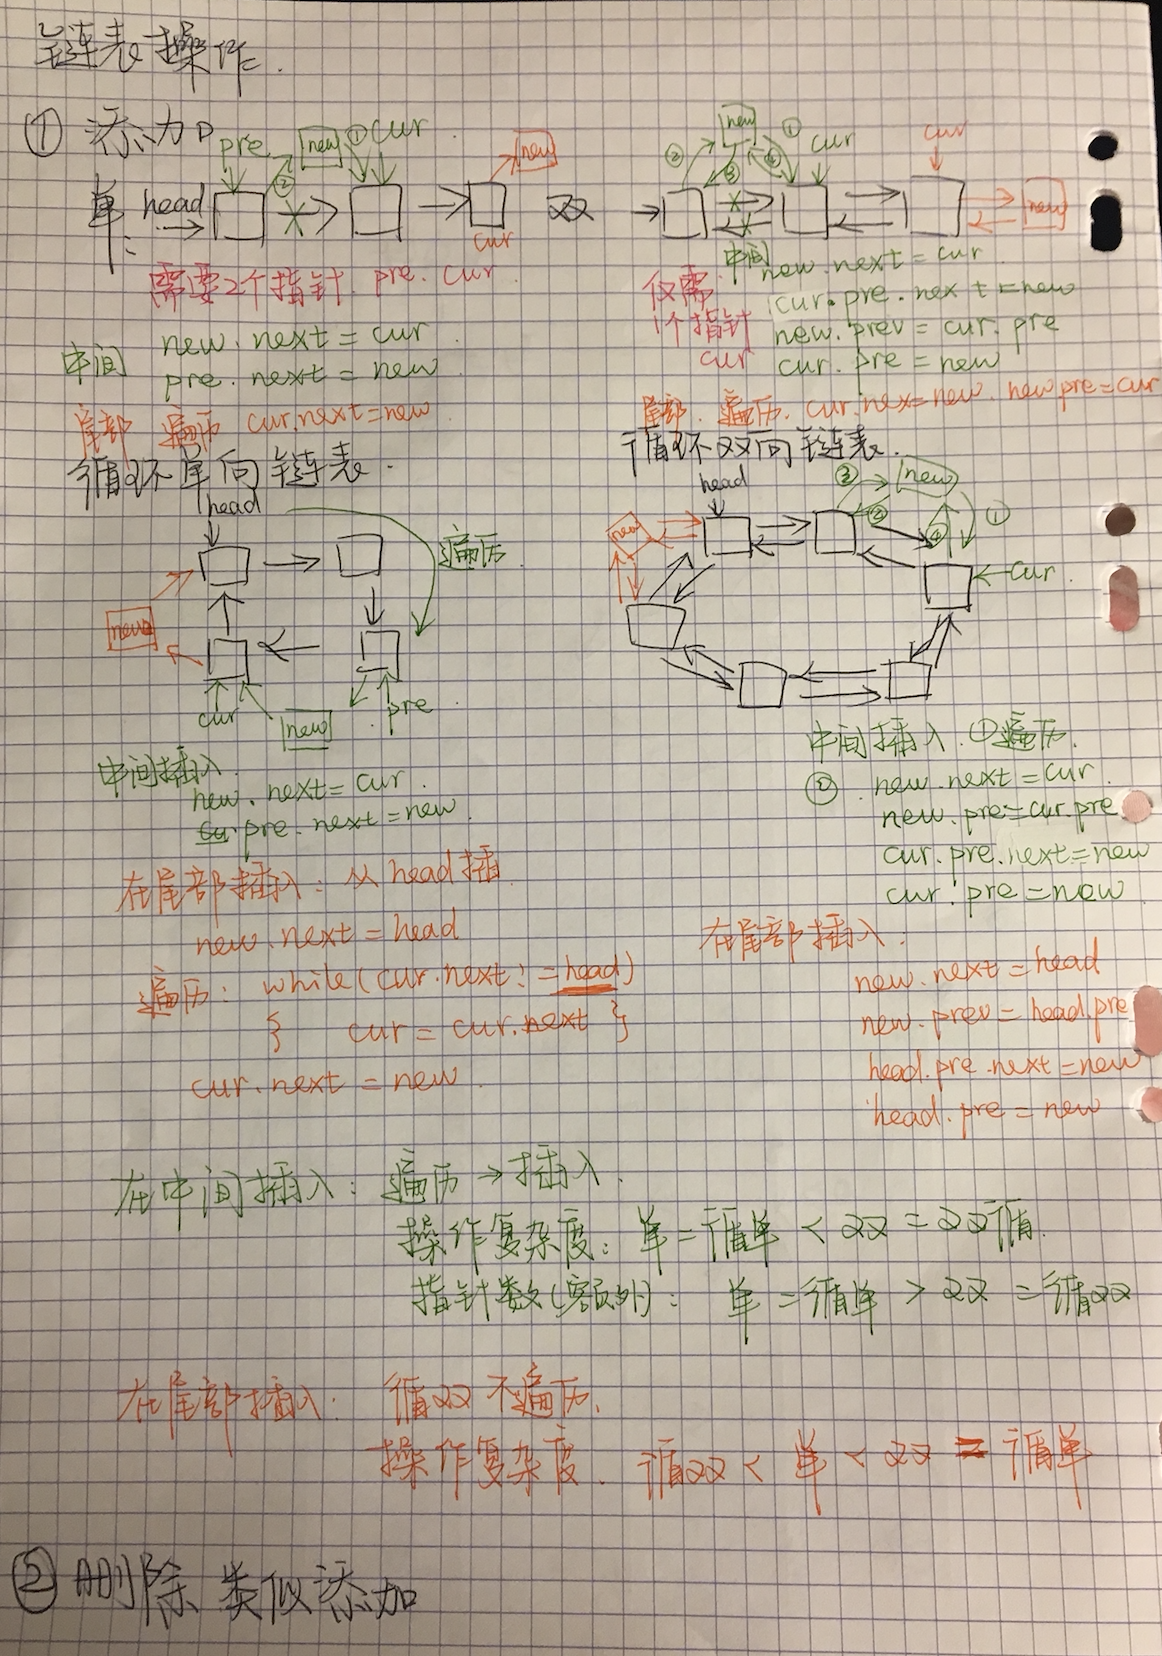 链表操作.
① 添加
pre new ① cur new
单: head ②
cur
需要2个指针. pre. cur
中间 new.next = cur
pre.next = new
尾部 遍历 cur.next=new
双 new ① cur cur
② ③ ④ new
仅需 1个指针 cur
中间 new.next = cur
cur.pre.next=new
new.prev = cur.pre
cur.pre = new
尾部. 遍历. cur.nex=new. new.pre=cur
循环单向链表.
head
遍历.
new
cur new pre
中间插入
new.next= cur.
pre.next=new
在尾部插入: 从head插
new.next = head
遍历: while(cur.next!=head)
{ cur = cur.next }
cur.next = new
循环双向链表.
head ③ new
new ② ④ ①
cur.
中间插入. ①遍历.
② new.next=cur
new.pre=cur.pre
cur.pre.next=new
cur.pre=new
在尾部插入.
new.next=head
new.prev=head.pre
head.pre.next=new
head.pre = new
在中间插入: 遍历→插入.
操作复杂度: 单=循单 < 双 = 双循
指针数(额外): 单=循单 > 双 =循双
在尾部插入: 循双 不遍历.
操作复杂度. 循双 < 单 < 双 = 循单
② 删除 类似添加